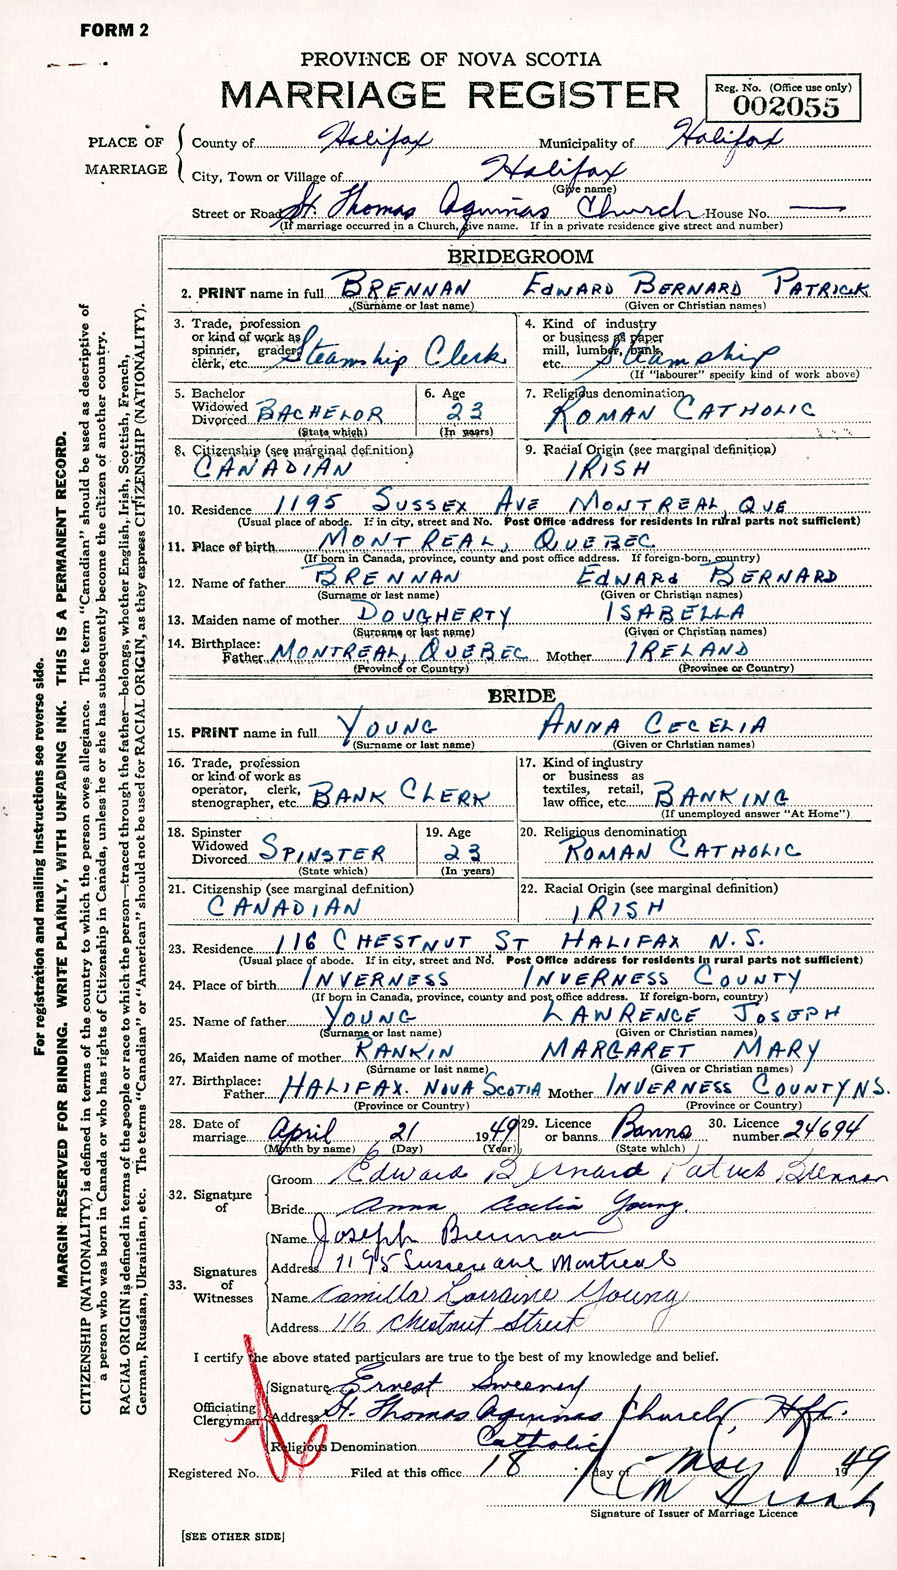 FORM 2
PROVINCE OF NOVA SCOTIA
MARRIAGE REGISTER
Reg. No. (Office use only)
002055
PLACE OF MARRIAGE
County of Halifax Municipality of Halifax
City, Town or Village of Halifax
(Give name)
Street or Road St. Thomas Aquinas Church House No. —
(If marriage occurred in a Church, give name. If in a private residence give street and number)
BRIDEGROOM
2. PRINT name in full BRENNAN EDWARD BERNARD PATRICK
(Surname or last name) (Given or Christian names)
3. Trade, profession
or kind of work as
spinner, grader,
clerk, etc. Steamship Clerk
4. Kind of industry
or business as paper
mill, lumber, bank,
etc. Steamship
(If "labourer" specify kind of work above)
5. Bachelor
Widowed
Divorced BACHELOR
(State which)
6. Age
23
(In years)
7. Religious denomination
ROMAN CATHOLIC
8. Citizenship (see marginal definition)
CANADIAN
9. Racial Origin (see marginal definition)
IRISH
10. Residence 1195 SUSSEX AVE MONTREAL, QUE
(Usual place of abode. If in city, street and No. Post Office address for residents in rural parts not sufficient)
11. Place of birth MONTREAL, QUEBEC
(If born in Canada, province, county and post office address. If foreign-born, country)
12. Name of father BRENNAN EDWARD BERNARD
(Surname or last name) (Given or Christian names)
13. Maiden name of mother DOUGHERTY ISABELLA
(Surname or last name) (Given or Christian names)
14. Birthplace:
Father MONTREAL, QUEBEC Mother IRELAND
(Province or Country) (Province or Country)
BRIDE
15. PRINT name in full YOUNG ANNA CECELIA
(Surname or last name) (Given or Christian names)
16. Trade, profession
or kind of work as
operator, clerk,
stenographer, etc. BANK CLERK
17. Kind of industry
or business as
textiles, retail,
law office, etc. BANKING
(If unemployed answer "At Home")
18. Spinster
Widowed
Divorced SPINSTER
(State which)
19. Age
23
(In years)
20. Religious denomination
ROMAN CATHOLIC
21. Citizenship (see marginal definition)
CANADIAN
22. Racial Origin (see marginal definition)
IRISH
23. Residence 116 CHESTNUT ST HALIFAX N.S.
(Usual place of abode. If in city, street and No. Post Office address for residents in rural parts not sufficient)
24. Place of birth INVERNESS INVERNESS COUNTY
(If born in Canada, province, county and post office address. If foreign-born, country)
25. Name of father YOUNG LAWRENCE JOSEPH
(Surname or last name) (Given or Christian names)
26. Maiden name of mother RANKIN MARGARET MARY
(Surname or last name) (Given or Christian names)
27. Birthplace:
Father HALIFAX. NOVA SCOTIA Mother INVERNESS COUNTY N.S.
(Province or Country) (Province or Country)
28. Date of
marriage April 21 1949
(Month by name) (Day) (Year)
29. Licence
or banns Banns
(State which)
30. Licence
number 24694
32. Signature of
Groom Edward Bernard Patrick Brennan
Bride Anna Cecelia Young.
33. Signatures of Witnesses
Name Joseph Brennan
Address 1195 Sussex ave Montreal
Name Camilla Lorraine Young
Address 116 Chestnut Street
I certify the above stated particulars are true to the best of my knowledge and belief.
Officiating Clergyman
Signature Ernest Sweeney
Address St. Thomas Aquinas Church, Hfx.
Religious Denomination Catholic
Registered No. Filed at this office 18 day of May 1949
Signature of Issuer of Marriage Licence
[SEE OTHER SIDE]
For registration and mailing instructions see reverse side.
MARGIN RESERVED FOR BINDING. WRITE PLAINLY, WITH UNFADING INK. THIS IS A PERMANENT RECORD.
CITIZENSHIP (NATIONALITY) is defined in terms of the country to which the person owes allegiance. The term "Canadian" should be used as descriptive of
a person who was born in Canada or who has rights of Citizenship in Canada, unless he or she has subsequently become the citizen of another country.
RACIAL ORIGIN is defined in terms of the people or race to which the person—traced through the father—belongs, whether English, Irish, Scottish, French,
German, Russian, Ukrainian, etc. The terms "Canadian" or "American" should not be used for RACIAL ORIGIN, as they express CITIZENSHIP (NATIONALITY).